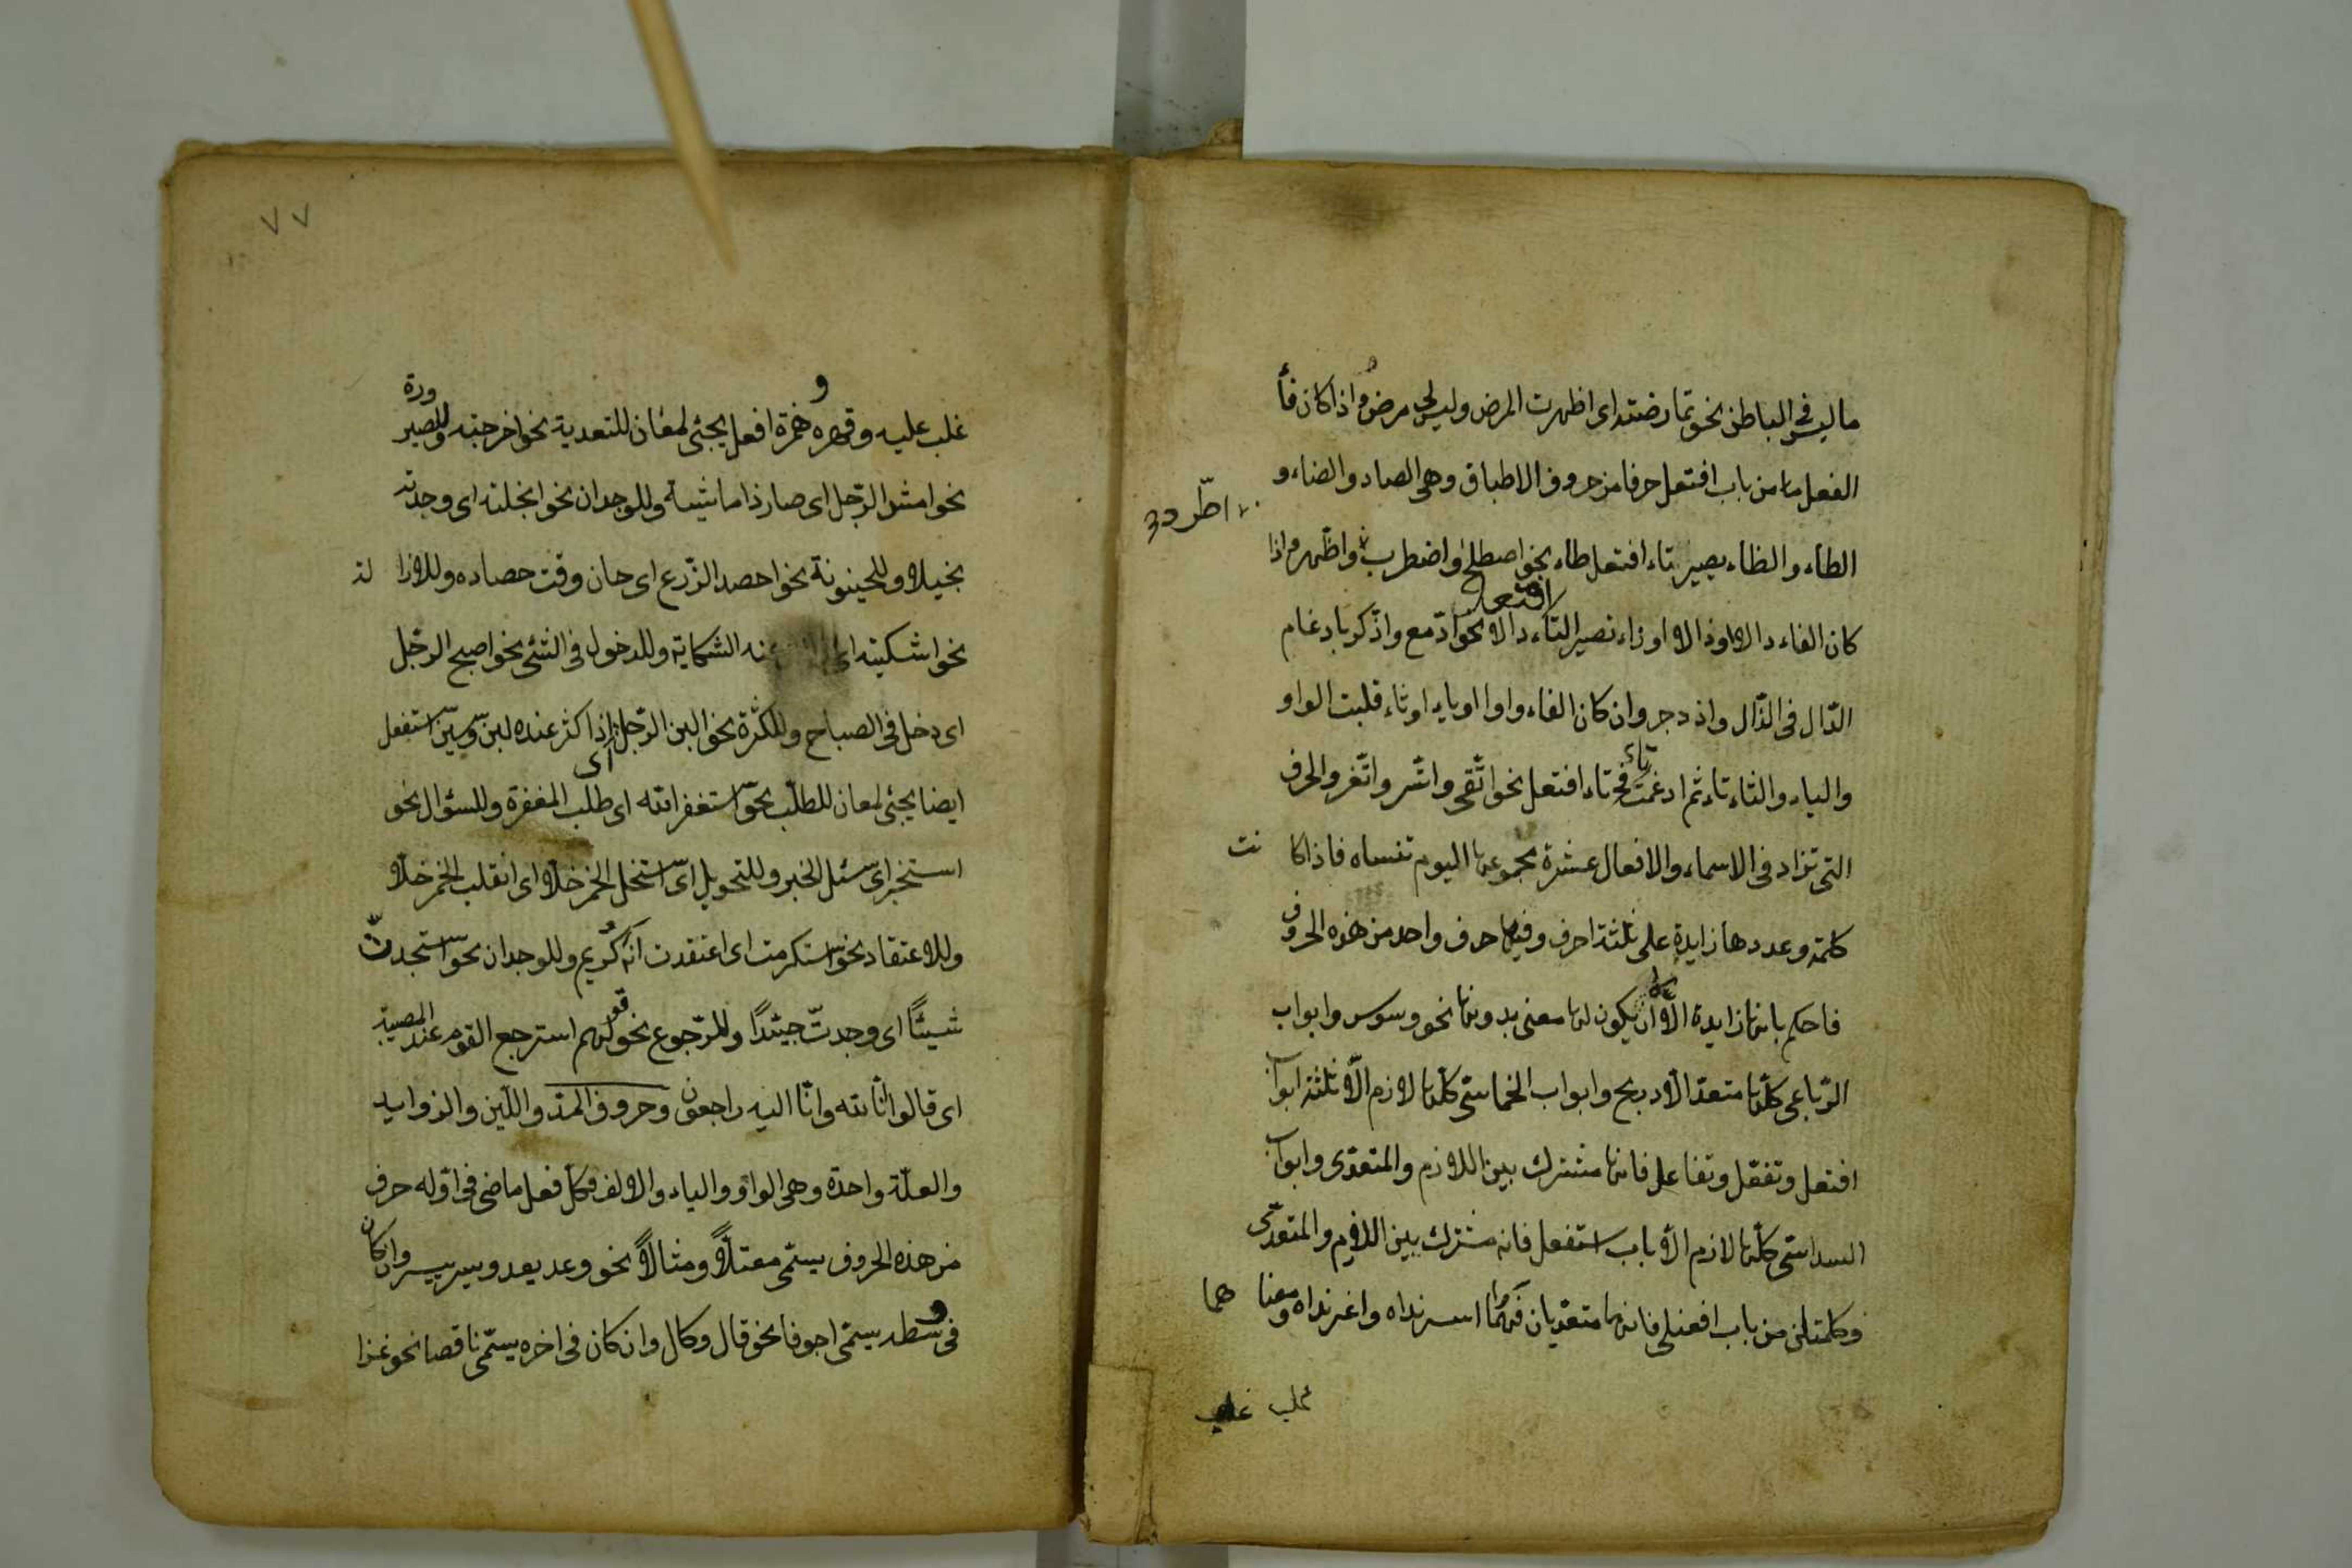 ما ليس فى الباطن نحو تمارضته اى اظهرت المرض وليس لى مرض واذا كان فأ
الفعل من باب افتعل حرفا من حروف الاطباق وهى الصاد والضاء و
الطاء والظاء يصير تاء افتعل طاء نحو اصطلح واضطرب واظهر واذا
اطّرد
كان الفاء دالا اوذالا او زاء تصير التاء افتعل دالا نحو ادّمع واذّكر بادغام
الدّال فى الذّال واذدجر وان كان الفاء واوا او ياء او ثاء قلبت الواو
والياء والثاء تاء ثم ادغمت تاء فى تاء افتعل نحو اتّقى واتّسر واتّغر والحرف
التى تزاد فى الاسماء والافعال عشرة مجموعها اليوم تنساه فاذا كانت
كلمة وعددها زايدة على ثلثة احرف وفيها حرف واحد من هذه الحروف
فاحكم بانها زايدة الّا ان يكون لها معنى بدونها نحو وسوس وابواب
الرّباعى كلّها متعدّ الّا دربح وابواب الخماسىّ كلّها لازم الّا ثلثة ابواب
افتعل وتفعّل وتفاعل فانها مشترك بين اللازم والمتعدّى وابواب
السداسىّ كلّها لازم الّا باب استفعل فانه مشترك بين اللازم والمتعدّى
وكلمتان من باب افعنلى فانهما متعدّيان هما اسرنداه واغرنداه ومعناهما
غلب
٧٧
غلب عليه وقهره وهمزة افعل يجئى لمعان للتعدية نحو اخرجته وللصيرورة
نحو امشى الرّجل اى صار ذا ماشية وللوجدان نحو ابخلته اى وجدته
بخيلا وللحينونة نحو احصد الزّرع اى حان وقت حصاده وللازالة
نحو اشكيته اى عنه الشكاية وللدخول فى الشئى نحو اصبح الرّجل
اى دخل فى الصباح وللكثرة نحو البن الرّجل اذا كثر عنده لبن وسين استفعل
ايضا يجئى لمعان للطلب نحو استغفر الله اى طلب المغفرة وللسؤال نحو
استخبر اى سئل الخبر وللتحويل اى استخل الخمر خلّا اى انقلب الخمر خلّا
وللاعتقاد نحو استكرمت اى اعتقدت انّه كريم وللوجدان نحو استجدتّ
شيئًا اى وجدتّ جيّدًا وللرّجوع نحو قولهم استرجع القوم عند المصيبة
اى قالوا انّا لله وانّا اليه راجعون وحروف المدّ واللّين والزوايد
والعلّة واحدة وهى الواو والياء والالف فكلّ فعل ماضى فى اوّله حرف
من هذه الحروف يسمّى معتلّاً ومثالاً نحو وعد يعد ويسر ييسر وان كان
فى وسطه يسمّى اجوفا نحو قال وكال وان كان فى اخره يسمّى ناقصا نحو غزا